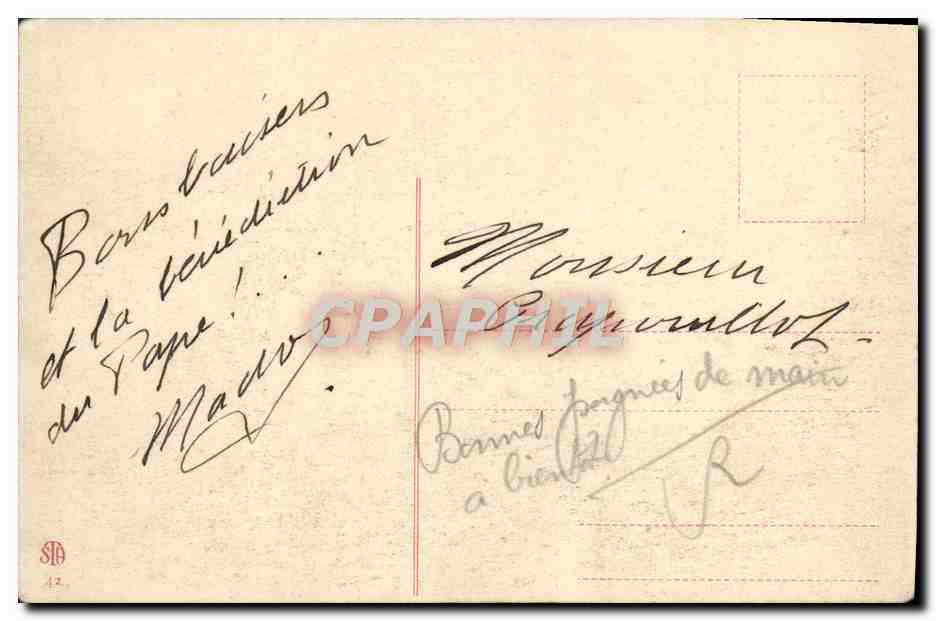 Bons baisers
et la bénédiction
du Pape! ...
Mado
Monsieur
CPAPHIL
Bonnes poignées de main
a bientôt
R
STA
42